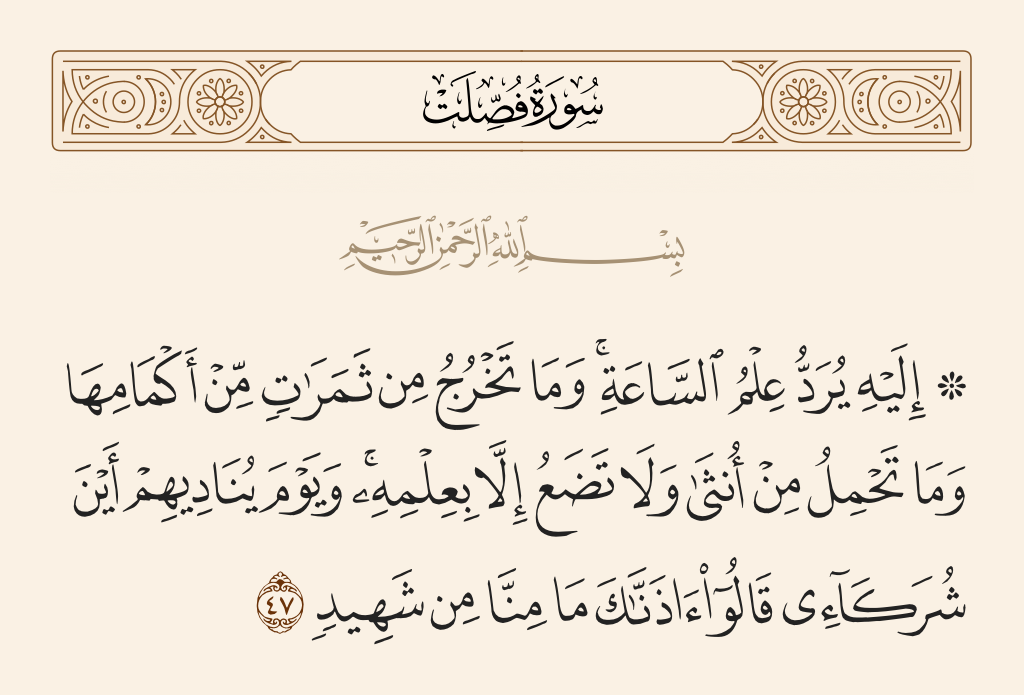 سُورَةُ فُصِّلَتْ
بِسْمِ ٱللَّهِ ٱلرَّحْمَٰنِ ٱلرَّحِيمِ
۞ إِلَيْهِ يُرَدُّ عِلْمُ ٱلسَّاعَةِ ۚ وَمَا تَخْرُجُ مِن ثَمَرَٰتٍ مِّنْ أَكْمَامِهَا
وَمَا تَحْمِلُ مِنْ أُنثَىٰ وَلَا تَضَعُ إِلَّا بِعِلْمِهِۦ ۚ وَيَوْمَ يُنَادِيهِمْ أَيْنَ
شُرَكَآءِى قَالُوٓا۟ ءَاذَنَّٰكَ مَا مِنَّا مِن شَهِيدٍ ٤٧